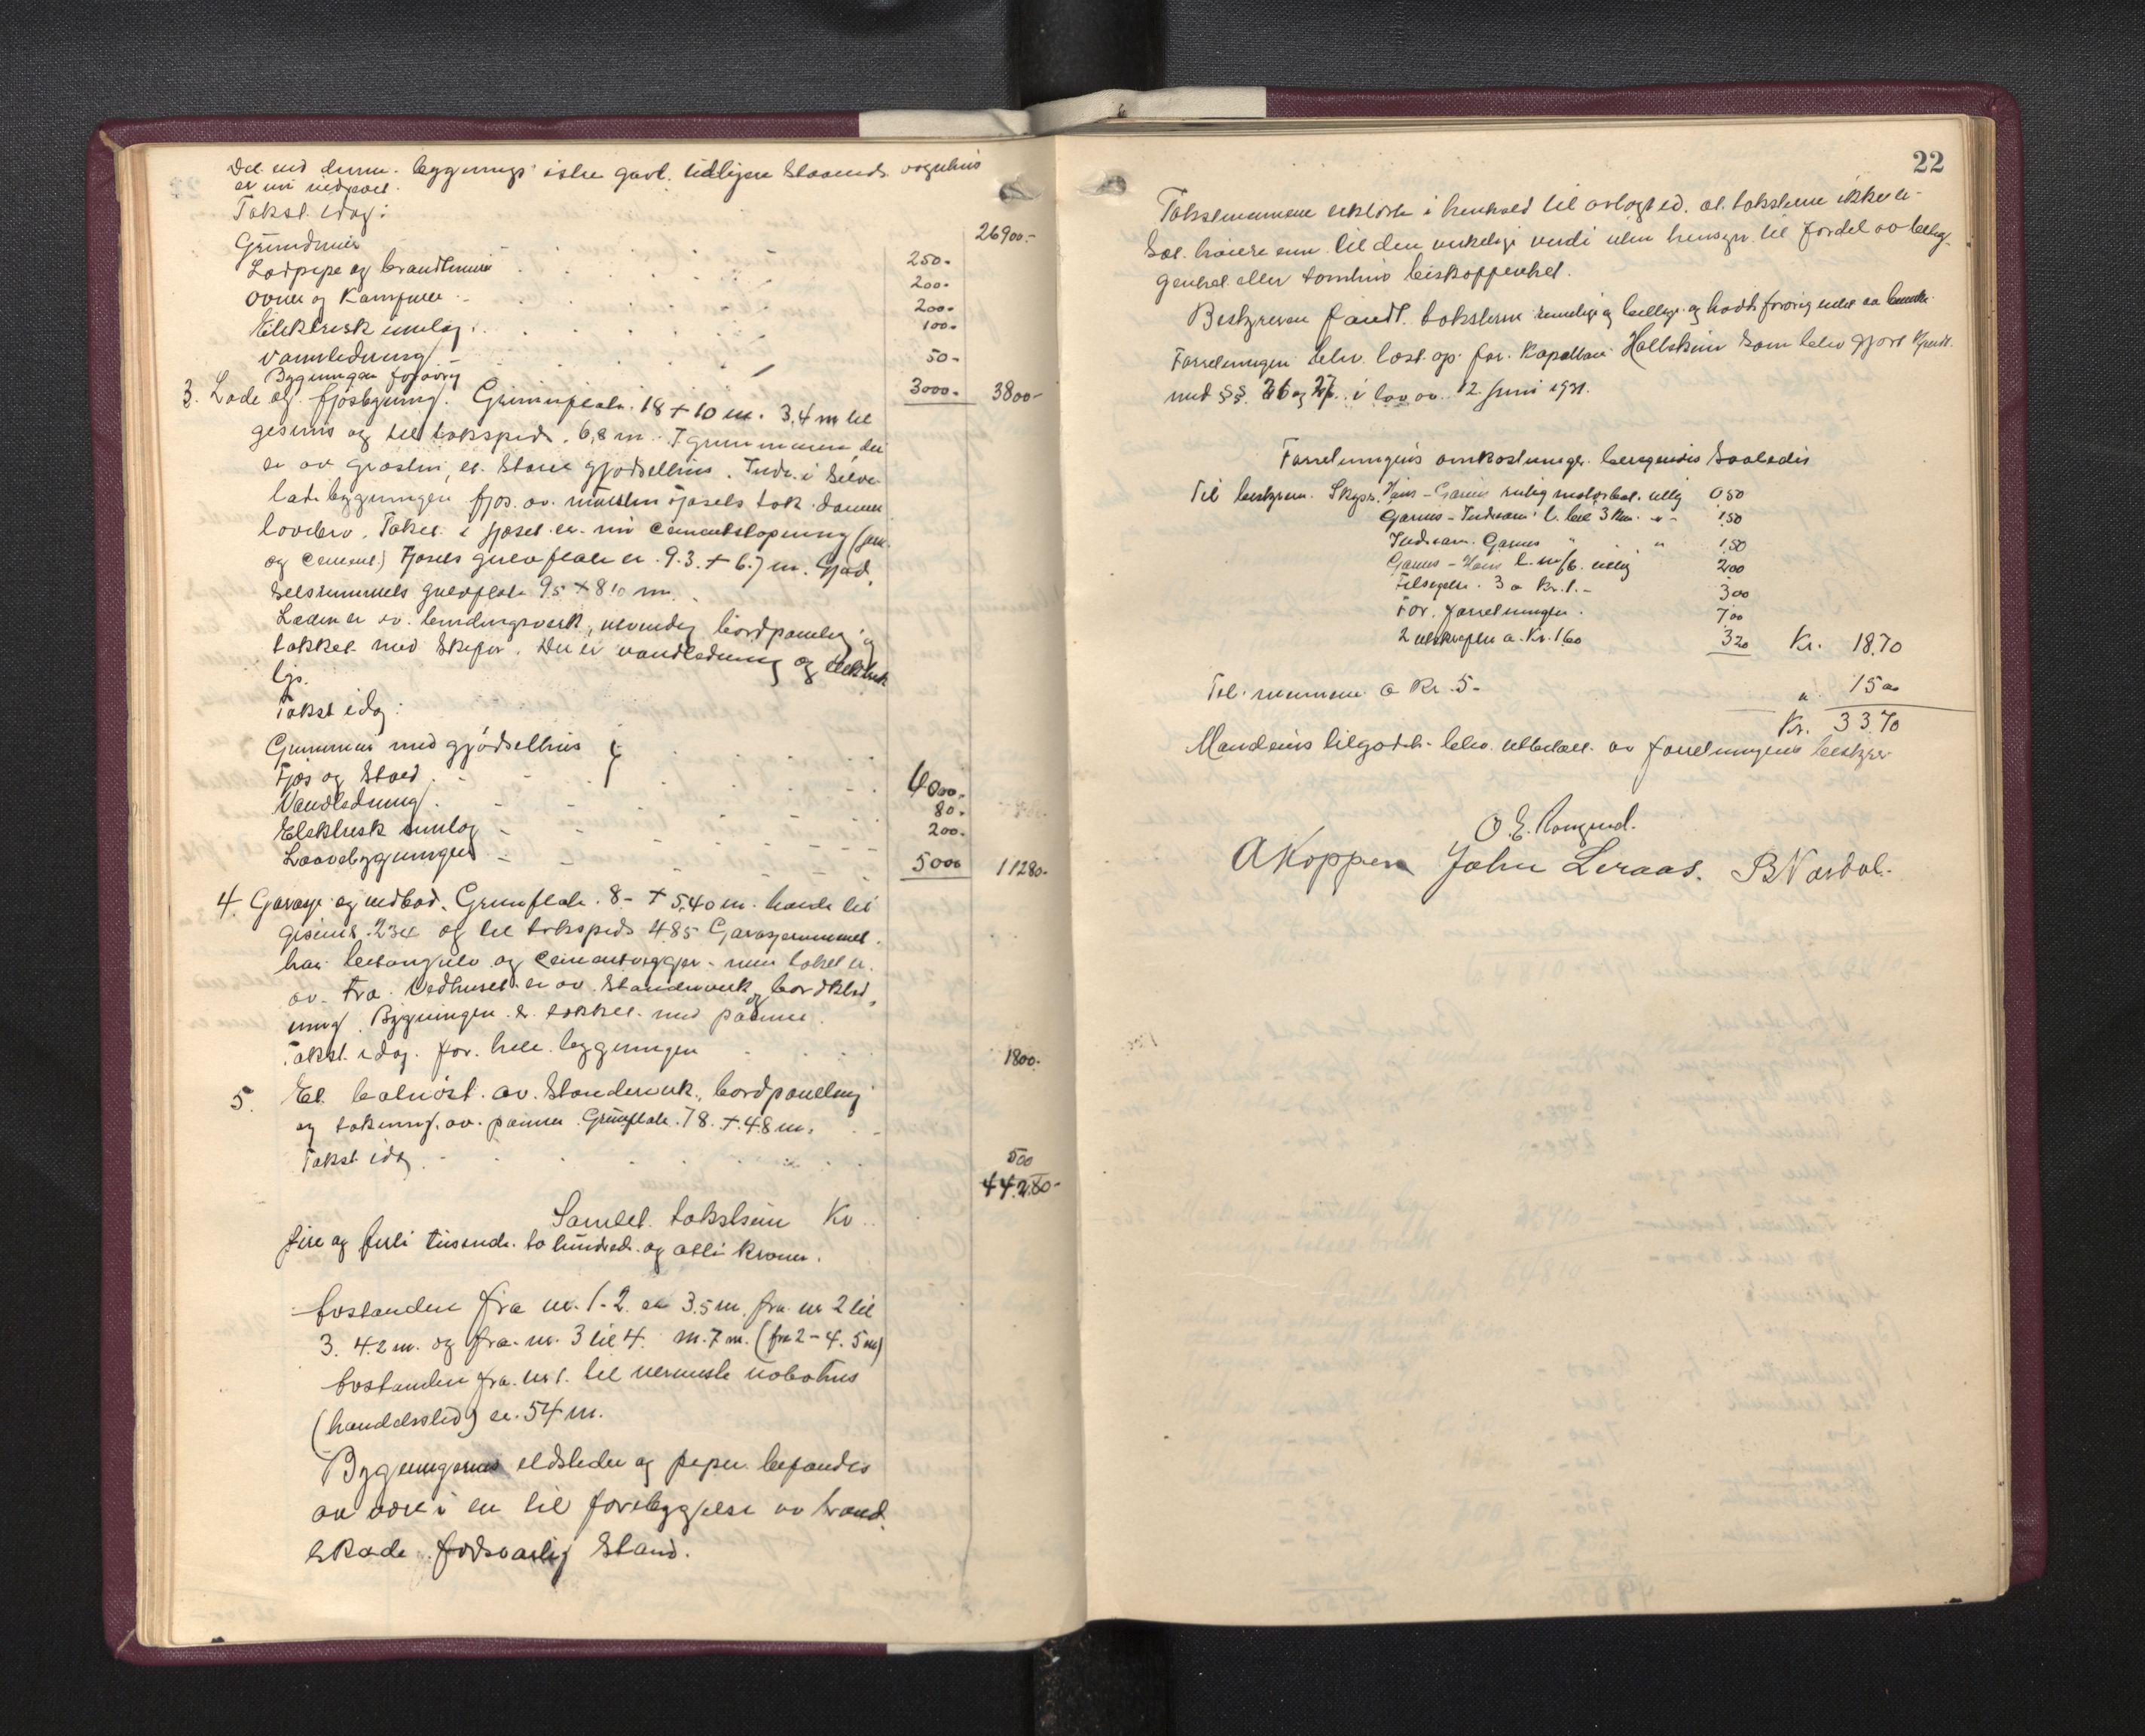 Det ved denne bygnings istre gavl tidligere staaende vognhus
er nu nedrevet.
Takst idag:
26900.-
Grundmur 250.-
Lodpipe og brandmur 200.-
Ovner og Kamfurer 200.-
Elektrisk innlag 100.-
Vannledning 50-
Bygningen forøvrig 3000.- 3800-
3. Lade og fjøsbygning. Grunnflate 18 + 10 m. 3,4 m til
gesims og til takspids 6,8 m. I grunnmuren der
er av graasten, er store gjødselhus. Indr. i selve
ladebygningen fjøs av mursten fjøsets tak danner
lovebro. Taket i fjøset er nu cementstøpning (jern
og cement) Fjøsets gulvflate er 9.3 + 6.7 m. Gjød-
selsrummets gulvflate 9.5 + 8.10 m.
Laden er av bindingsverk, utvendig bordpaneling og
takket med skifer. Der er vandledning og elektrisk
lys.
Takst idag:
Grunmur med gjødselhus
Fjøs og Stald 6000.-
Vandledning 80.-
Elektrisk innlag 200.-
Laavebygningen 5000 11280.-
4. Garage og vedbod. Grunflate 8.- + 5.40 m. høide til
gesims 2.34 og til takspids 4.85 Garagerummet
har betongulv og cementvegger - men taket er
av tra. Vedhuset er av standerverk og bordkled-
ning. Bygningen er takket med panner.
Takst idag for hele bygningen 1800.-
5. Et batnøst av standerverk, bordpaneling
og takning av panner Grunflate 7.8 + 4.8 m.
Takst idag 500
44.280-
Samlet takstsum Kr.
fire og firti tusende to hundrede og otti kroner.
Avstanden fra nr. 1-2 er 3.5 m. fra nr 2 til
3. 4.2 m. og fra nr. 3 til 4 m. 7 m. (fra 2-4. 5 m)
Avstanden fra nr 1. til nermeste nabohus
(handelssted) er 54 m.
Bygningernes ildsteder og piper befandtes
at være i en til forebyggelse av brand-
skade forsvarlig stand.
22
Takstmennene erklærte i henhold til avlagt ed, at takstene ikke er
sat høiere enn til den virkelige verdi uten hensyn til fordel av belig-
genhet eller tomtens beskaffenhet.
Bestyreren fandt takstene rimelige og billige og hadde forøvrig intet at bemerke.
Forretningen blev læst op for Kapellan Hallstein som blev gjort kjendt
med §§ 26 og 27 i lov av 12. juni 1931.
Forretningens omkostninger beregnedes saaledes
Til bestyreren Skyss. Høis - Garnes rutig motorbat. utlig 0 50
Garnes - Indream l. bil 3 Km. " - 1 50
Indream - Garnes " " 1 50
Garnes - Høis l. m/b. utlig 2 00
Tilsigelse 3 a Kr. 1.- 3 00
For forretningen 7 00
2 utskrifter a Kr. 1.60 3 20 Kr. 18.70
Til mennene a Kr. 5- " 15 00
Kr. 33.70
Mendenes tilgodeh. blev utbetalt av forretningens bestyrer
O. E. Rongved.
A Koppen John Leraas. B Nordal.